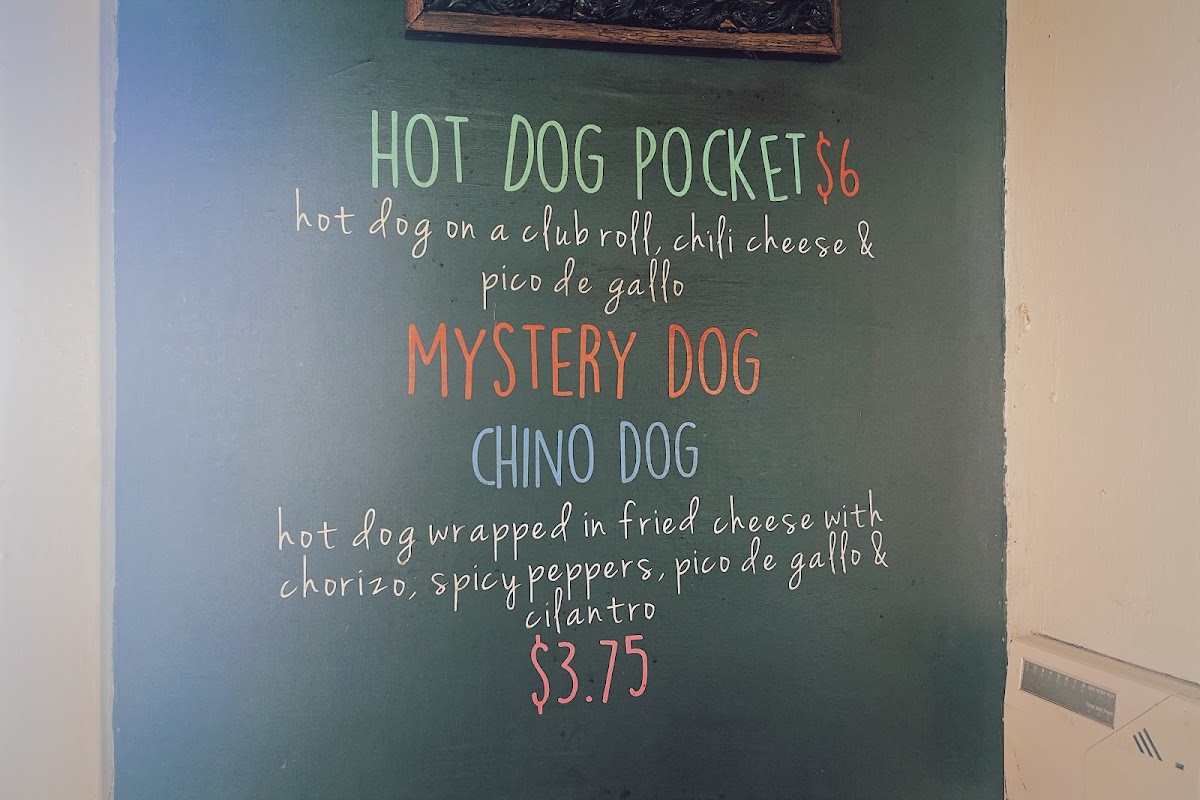 HOT DOG POCKET $6
hot dog on a club roll, chili cheese &
pico de gallo
MYSTERY DOG
CHINO DOG
hot dog wrapped in fried cheese with
chorizo, spicy peppers, pico de gallo &
cilantro
$3.75